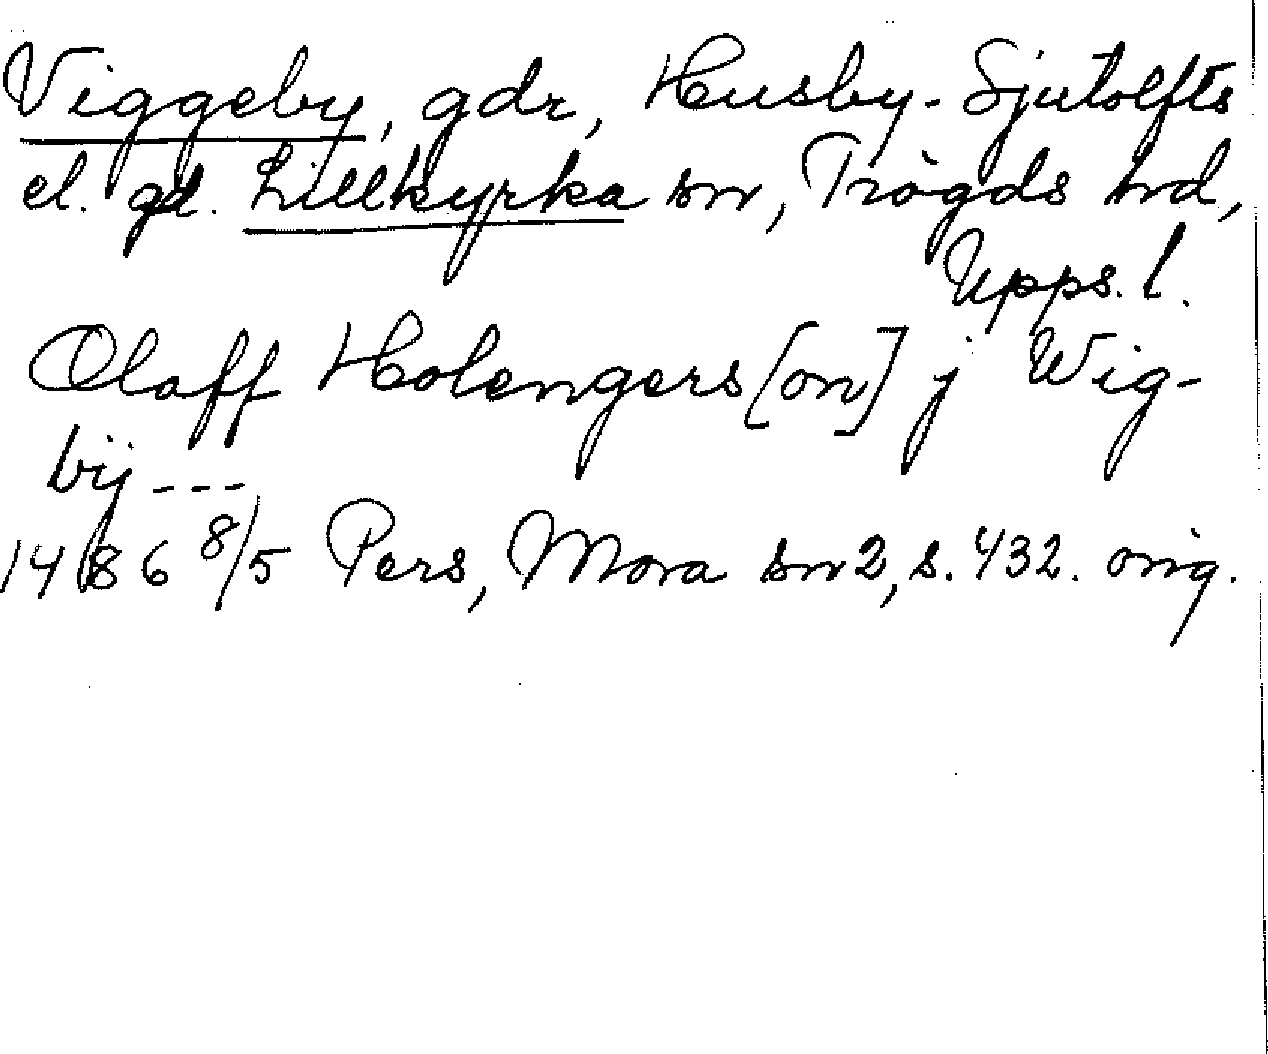 Viggeby, gdr, Husby-Sjutolfts
el. gd. Lillkyrka sn, Trögds hd,
Upps. l.
Olaff Holengers[on] j Wig-
bÿ ---
1486 8/5 Pers, Mora sn 2, s. 432. orig.